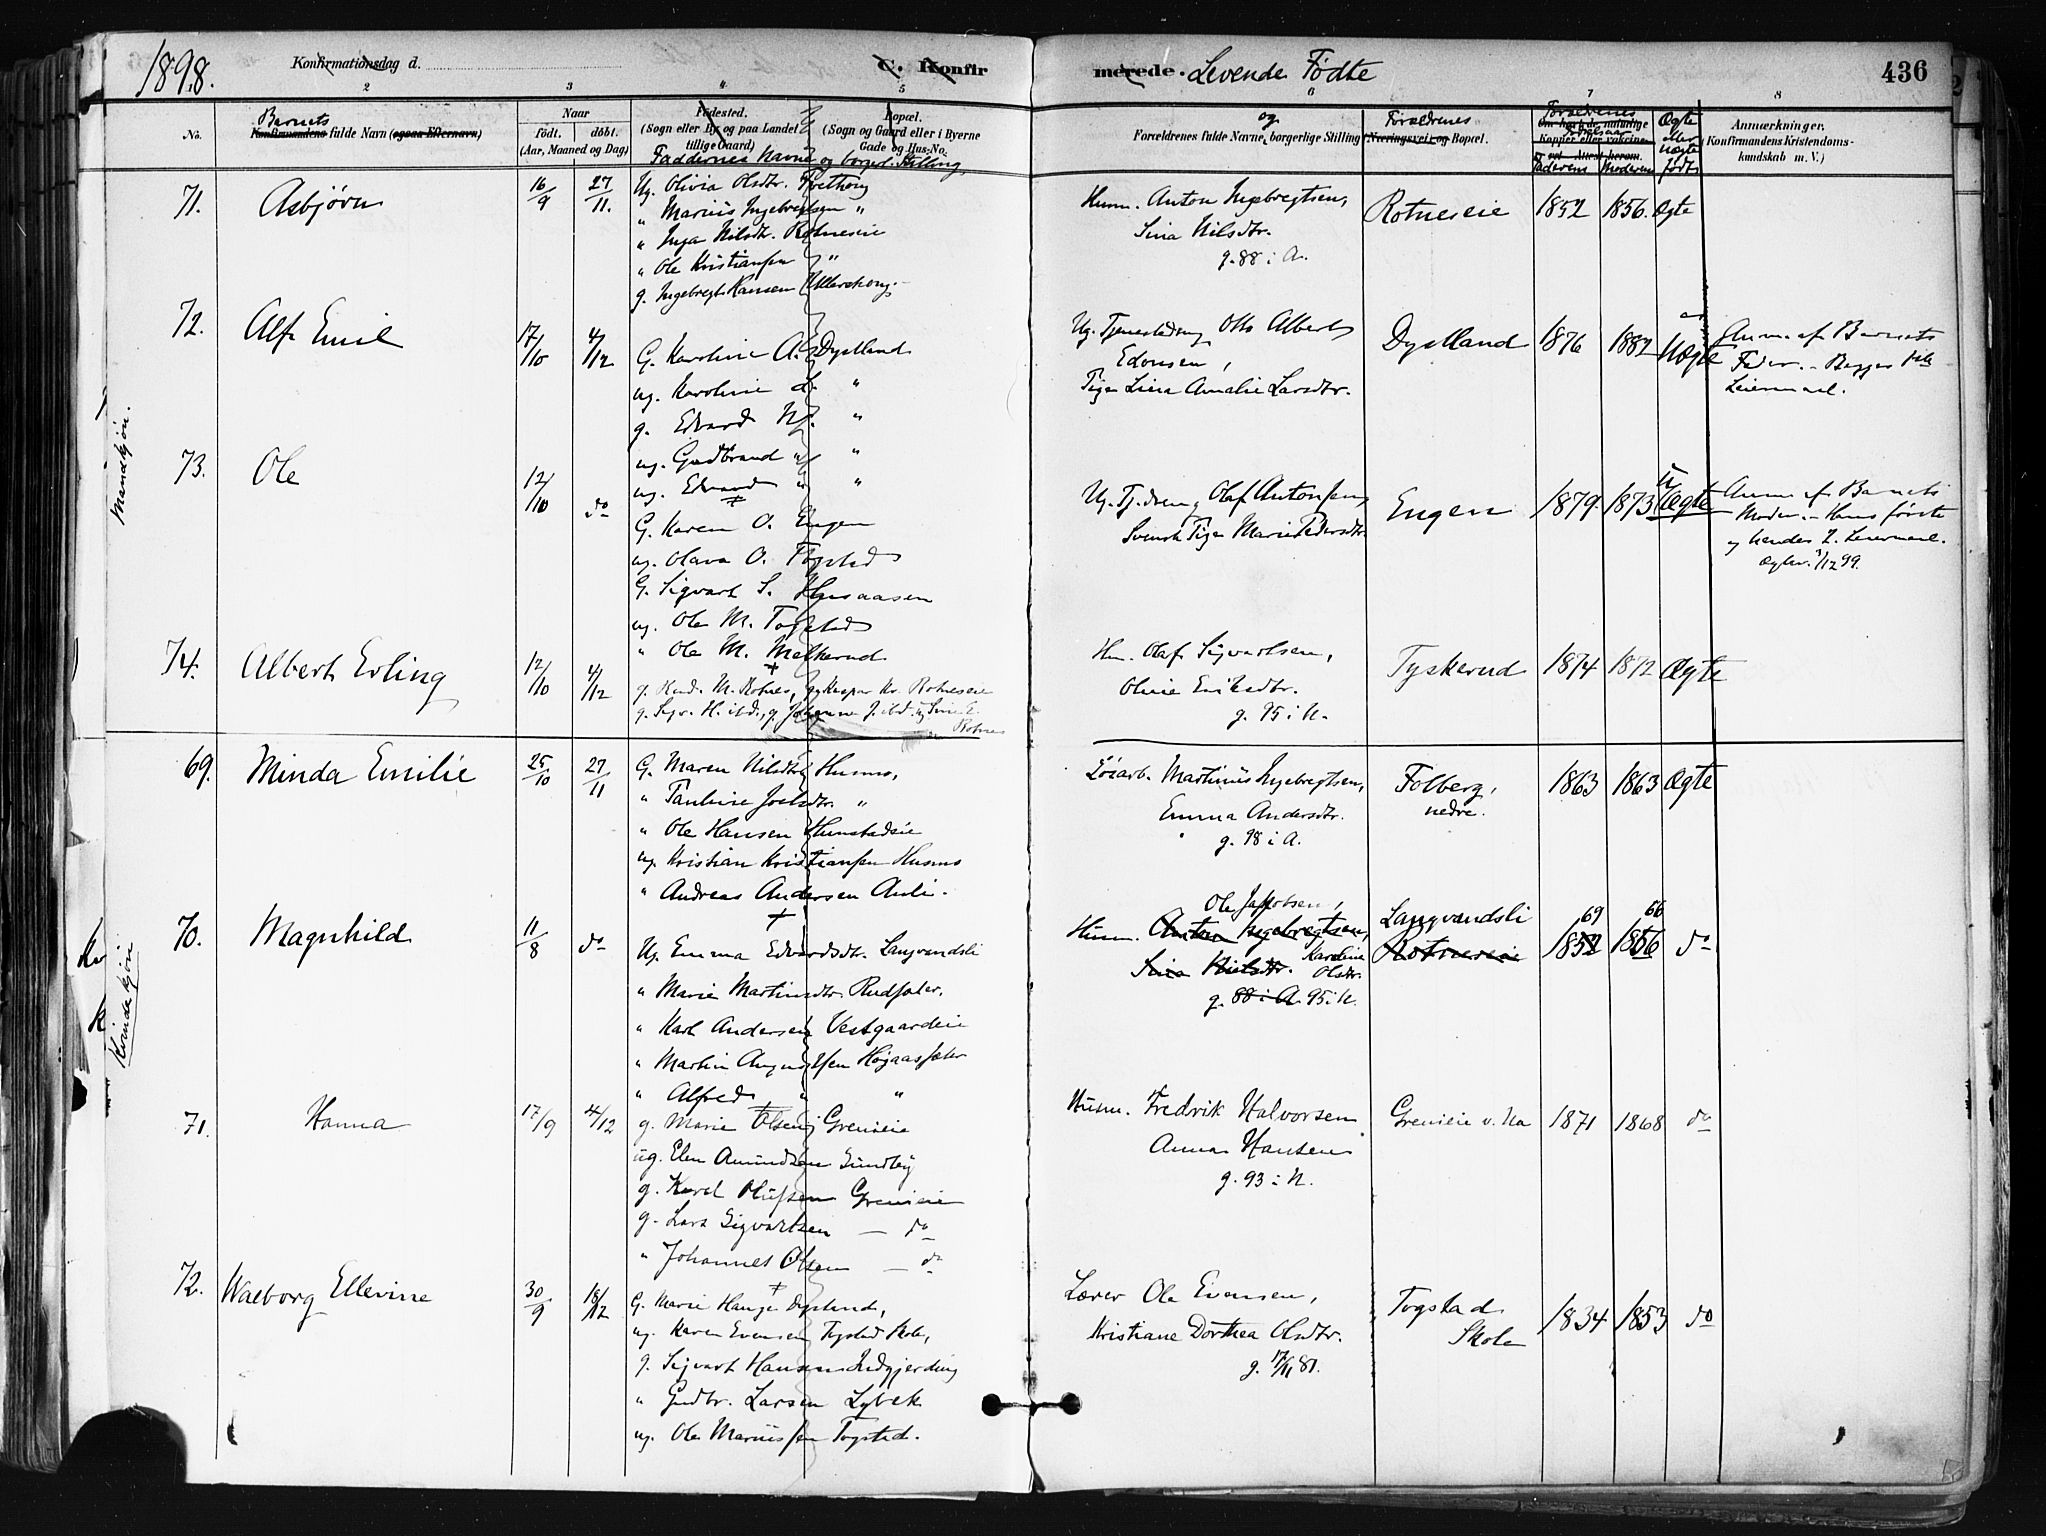 1898. Konfirmationsdag d. C. Konfir
merede. Levende Fødte 436
2 3 4 5 6 7 8
No. Barnets Konfirmandens fulde Navn (ogsaa Efternavn)
Naar
Født. døbt.
(Aar, Maaned og Dag)
Fødested.
(Sogn eller By og paa Landet
tillige Gaard)
Bopæl.
(Sogn og Gaard eller i Byerne
Gade og Hus-No.
Faddernes Navne og borgerl. Stilling
Forældrenes fulde Navne, og borgerlige Stilling
Forældrenes
Næringsvei og Bopæl.
Forældrenes
Fødselsaar
Faderens Moderens
Ægte
eller
uægte
født
Anmærkninger.
(Konfirmandens Kristendoms-
kundskab m. V.)
Mandkjøn.
71. Asbjørn 16/9 27/11.
Ug. Olivia Olsdtr. Tvethøug
" Marius Ingebregtsen "
" Inga Nilsdtr. Rotneseie
" Ole Kristiansen "
g. Ingebregt Hansen Ullershoug.
Husm. Anton Ingebregtsen,
Sina Nilsdtr.
g. 88 i A.
Rotneseie 1852 1856. Ægte
72. Alf Emil 17/10 4/12
G. Karoline A. Dystland
ug. Karoline L. "
g. Edvard N. "
ug. Gudbrand " "
ug. Edvard " "
Ug. Tjenestedreng Otto Albert
Edonsen,
Pige Lina Amalie Larsdtr.
Dystland 1876 1882 Uægte
Anm. af Barnets
Fader. - Begges 1ste
Leiermaal.
73. Ole 12/10 do
G. Karen O. Engen
ug. Olava O. Togstad
G. Sigvart S. Husaasen
ug. Ole M. Togstad
" Ole M. Melkerud
Ug. Tj.dreng Olaf Antonsen,
Svensk Pige Marie Pedersdtr.
Engen 1879. 1873 Uægte
Anm. af Barnets
Moder. - Hans første
og hendes 2. Leiermaal.
Ægtev. 1/12 99.
74. Albert Erling 12/10 4/12
g. M. Rotnes, Kaspar Kr. Rotneseie
g. Sigv. H. ibd., g. Johanne J. ibd. ug Sina E.
Rotnes
Hm. Olaf Sigvartsen,
Oline Eriksdtr.
g. 95 i N.
Tyskerud 1874 1872 Ægte
Kvindekjøn
69. Minda Emilie 25/10 27/11
G. Maren Nilsdtr. Husmo,
" Pauline Joelsdtr. "
" Ole Hansen Hunstadeie
ug. Kristian Kristiansen Husmo
" Andreas Andersen Auli.
Løsarb. Martinus Ingebregtsen,
Emma Andersdtr.
g. 98 i A.
Folberg,
nedre.
1863 1863 Ægte
70. Magnhild 11/8 do
Ug. Emma Edvardsdtr. Langvandsli
" Marie Martinsdtr. Rudsæter,
" Karl Andersen Vestgaardeie
" Martin Augustsen Høgaassæter
" Alfred " "
Ole Jakobsen,
Husm. Anton Ingebregtsen,
Sina Nielsdtr. Karoline
Olsdtr.
g. 88 i A. 95 i N.
Langvandsli
Rotneseie
69 66
1852 1856 do
71. Hanna 17/9 4/12
g. Marie Olsen Grenieie
ug. Elen Amundsen Sundby
g. Karel Olufsen Grenieie
g. Lars Sigvartsen - do
" Johannes Olsen - do
Husm. Fredrik Halvorsen
Anna Hansen
g. 93 i N.
Grenieie v. Na 1871 1868 do
72. Walborg Ellevine 30/9 18/12
G. Marie Hauge Dystland,
ug. Karen Evensen Togstad Skole,
g. Sigvart Hansen Indgjerding
" Gudbr. Larsen Lybek
ug. Ole Mariussen Togstad.
Lærer Ole Evensen,
Kristiane Dorthea Olsdtr.
g. 17/11 81.
Togstad
Skole
1834 1853 do